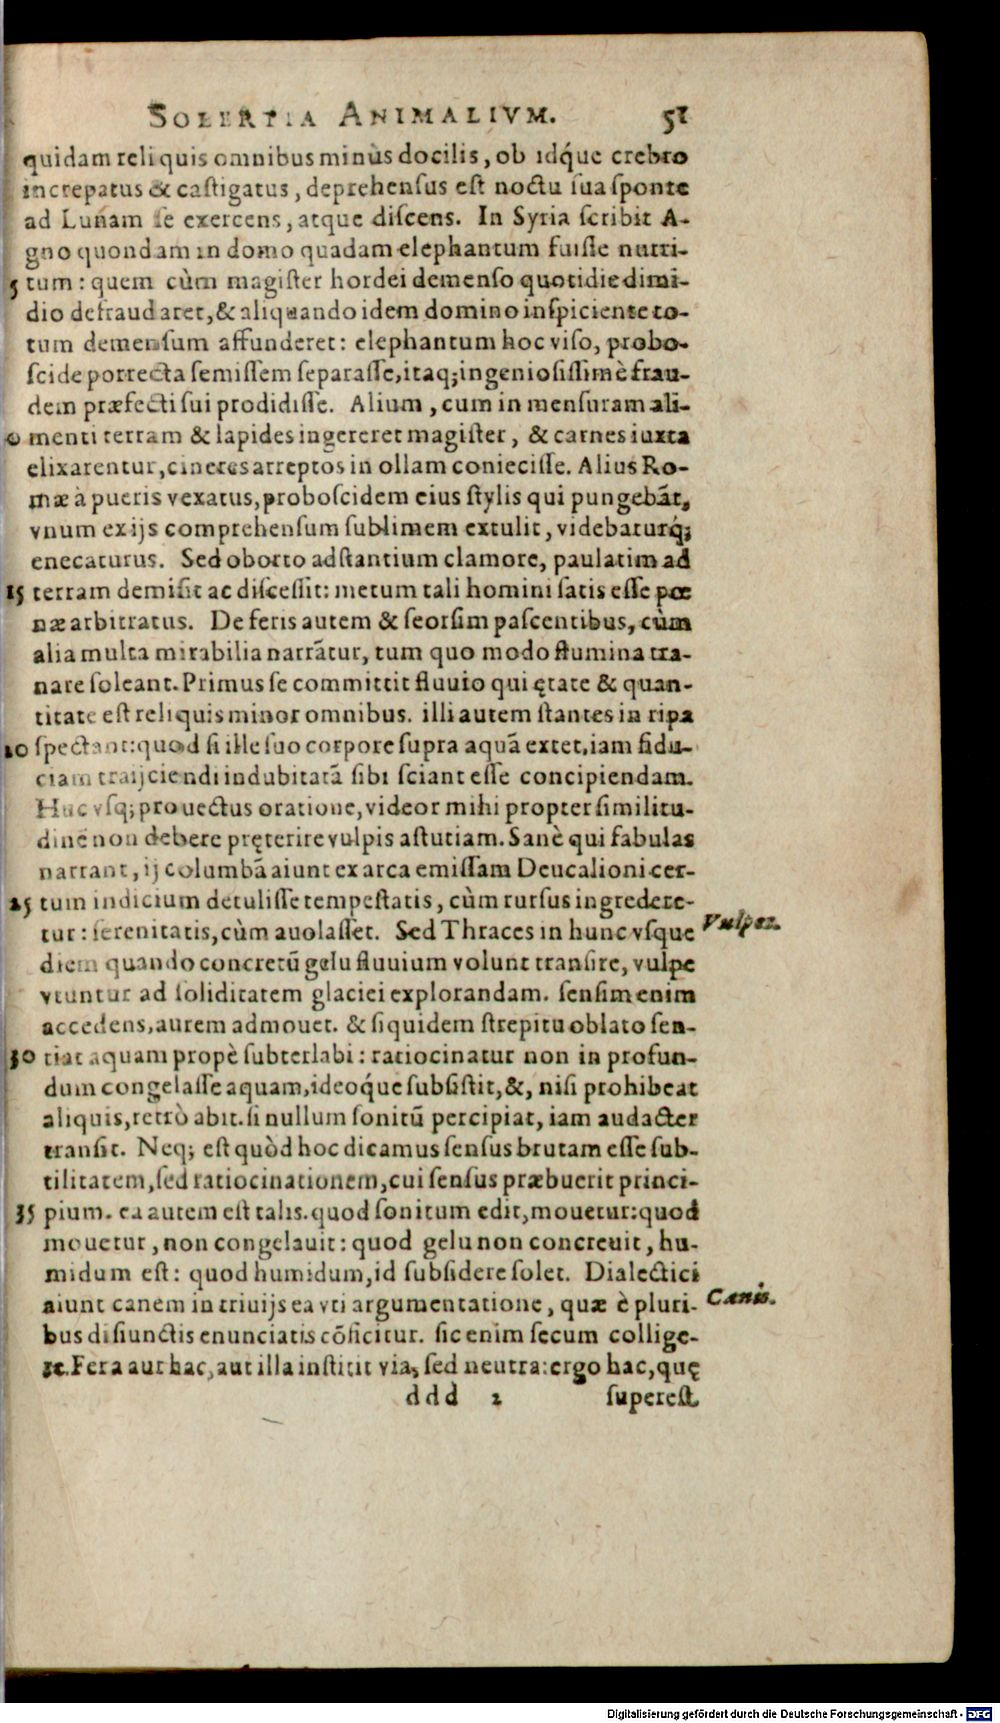 SOLERTIA ANIMALIVM. 51
quidam reliquis omnibus minùs docilis, ob idq́ue crebro
increpatus & castigatus, deprehensus est noctu sua sponte
ad Lunam se exercens, atque discens. In Syria scribit A-
gno quondam in domo quadam elephantum fuisse nutri-
5 tum: quem cùm magister hordei demenso quotidie dimi-
dio defraudaret, & aliquando idem domino inspiciente to-
tum demensum affunderet: elephantum hoc viso, probo-
scide porrecta semissem separasse, itaq; ingeniosissimè frau-
dem præfecti sui prodidisse. Alium, cum in mensuram ali-
0 menti terram & lapides ingereret magister, & carnes iuxta
elixarentur, cineres arreptos in ollam coniecisse. Alius Ro-
mæ à pueris vexatus, proboscidem eius stylis qui pungebāt,
vnum ex ijs comprehensum sublimem extulit, videbaturq;
enecaturus. Sed oborto adstantium clamore, paulatim ad
15 terram demisit ac discessit: metum tali homini satis esse pœ
næ arbitratus. De feris autem & seorsim pascentibus, cùm
alia multa mirabilia narrātur, tum quo modo flumina tra-
nare soleant. Primus se committit fluuio qui ętate & quan-
titate est reliquis minor omnibus. illi autem stantes in ripa
20 spectant: quod si ille suo corpore supra aquā extet, iam fidu-
ciam traijciendi indubitatā sibi sciant esse concipiendam.
Huc vsq; prouectus oratione, videor mihi propter similitu-
dinē non debere pręterire vulpis astutiam. Sanè qui fabulas
narrant, ij columbā aiunt ex arca emissam Deucalioni cer-
25 tum indicium detulisse tempestatis, cùm rursus ingredere-
tur: serenitatis, cùm auolasset. Sed Thraces in hunc vsque
Vulpes.
diem quando concretū gelu fluuium volunt transire, vulpe
vtuntur ad soliditatem glaciei explorandam. sensim enim
accedens, aurem admouet. & siquidem strepitu oblato sen-
30 tiat aquam propè subterlabi: ratiocinatur non in profun-
dum congelasse aquam, ideoq́ue subsistit, &, nisi prohibeat
aliquis, retrò abit. si nullum sonitū percipiat, iam audacter
transit. Neq; est quòd hoc dicamus sensus brutam esse sub-
tilitatem, sed ratiocinationem, cui sensus præbuerit princi-
35 pium. ea autem est talis. quod sonitum edit, mouetur: quod
mouetur, non congelauit: quod gelu non concreuit, hu-
midum est: quod humidum, id subsidere solet. Dialectici
aiunt canem in triuijs ea vti argumentatione, quæ è pluri-
Canis.
bus disiunctis enunciatis cōficitur. sic enim secum collige-
re. Fera aut hac, aut illa institit via, sed neutra: ergo hac, quę
ddd 2 superest.
Digitalisierung gefördert durch die Deutsche Forschungsgemeinschaft - DFG